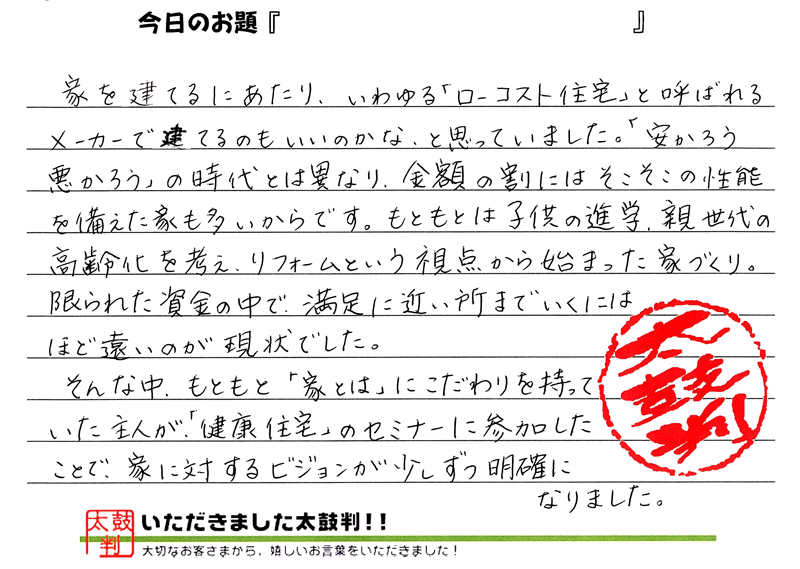 今日のお題『 』
家を建てるにあたり、いわゆる「ローコスト住宅」と呼ばれる
メーカーで建てるのもいいのかな、と思っていました。「安かろう
悪かろう」の時代とは異なり、金額の割にはそこそこの性能
を備えた家も多いからです。もともとは子供の進学、親世代の
高齢化を考え、リフォームという視点から始まった家づくり。
限られた資金の中で、満足に近い所までいくには
ほど遠いのが現状でした。
そんな中、もともと「家とは」にこだわりを持って
いた主人が、「健康住宅」のセミナーに参加した
ことで、家に対するビジョンが少しずつ明確に
なりました。
太鼓判
太鼓判 いただきました太鼓判!!
大切なお客さまから、嬉しいお言葉をいただきました!